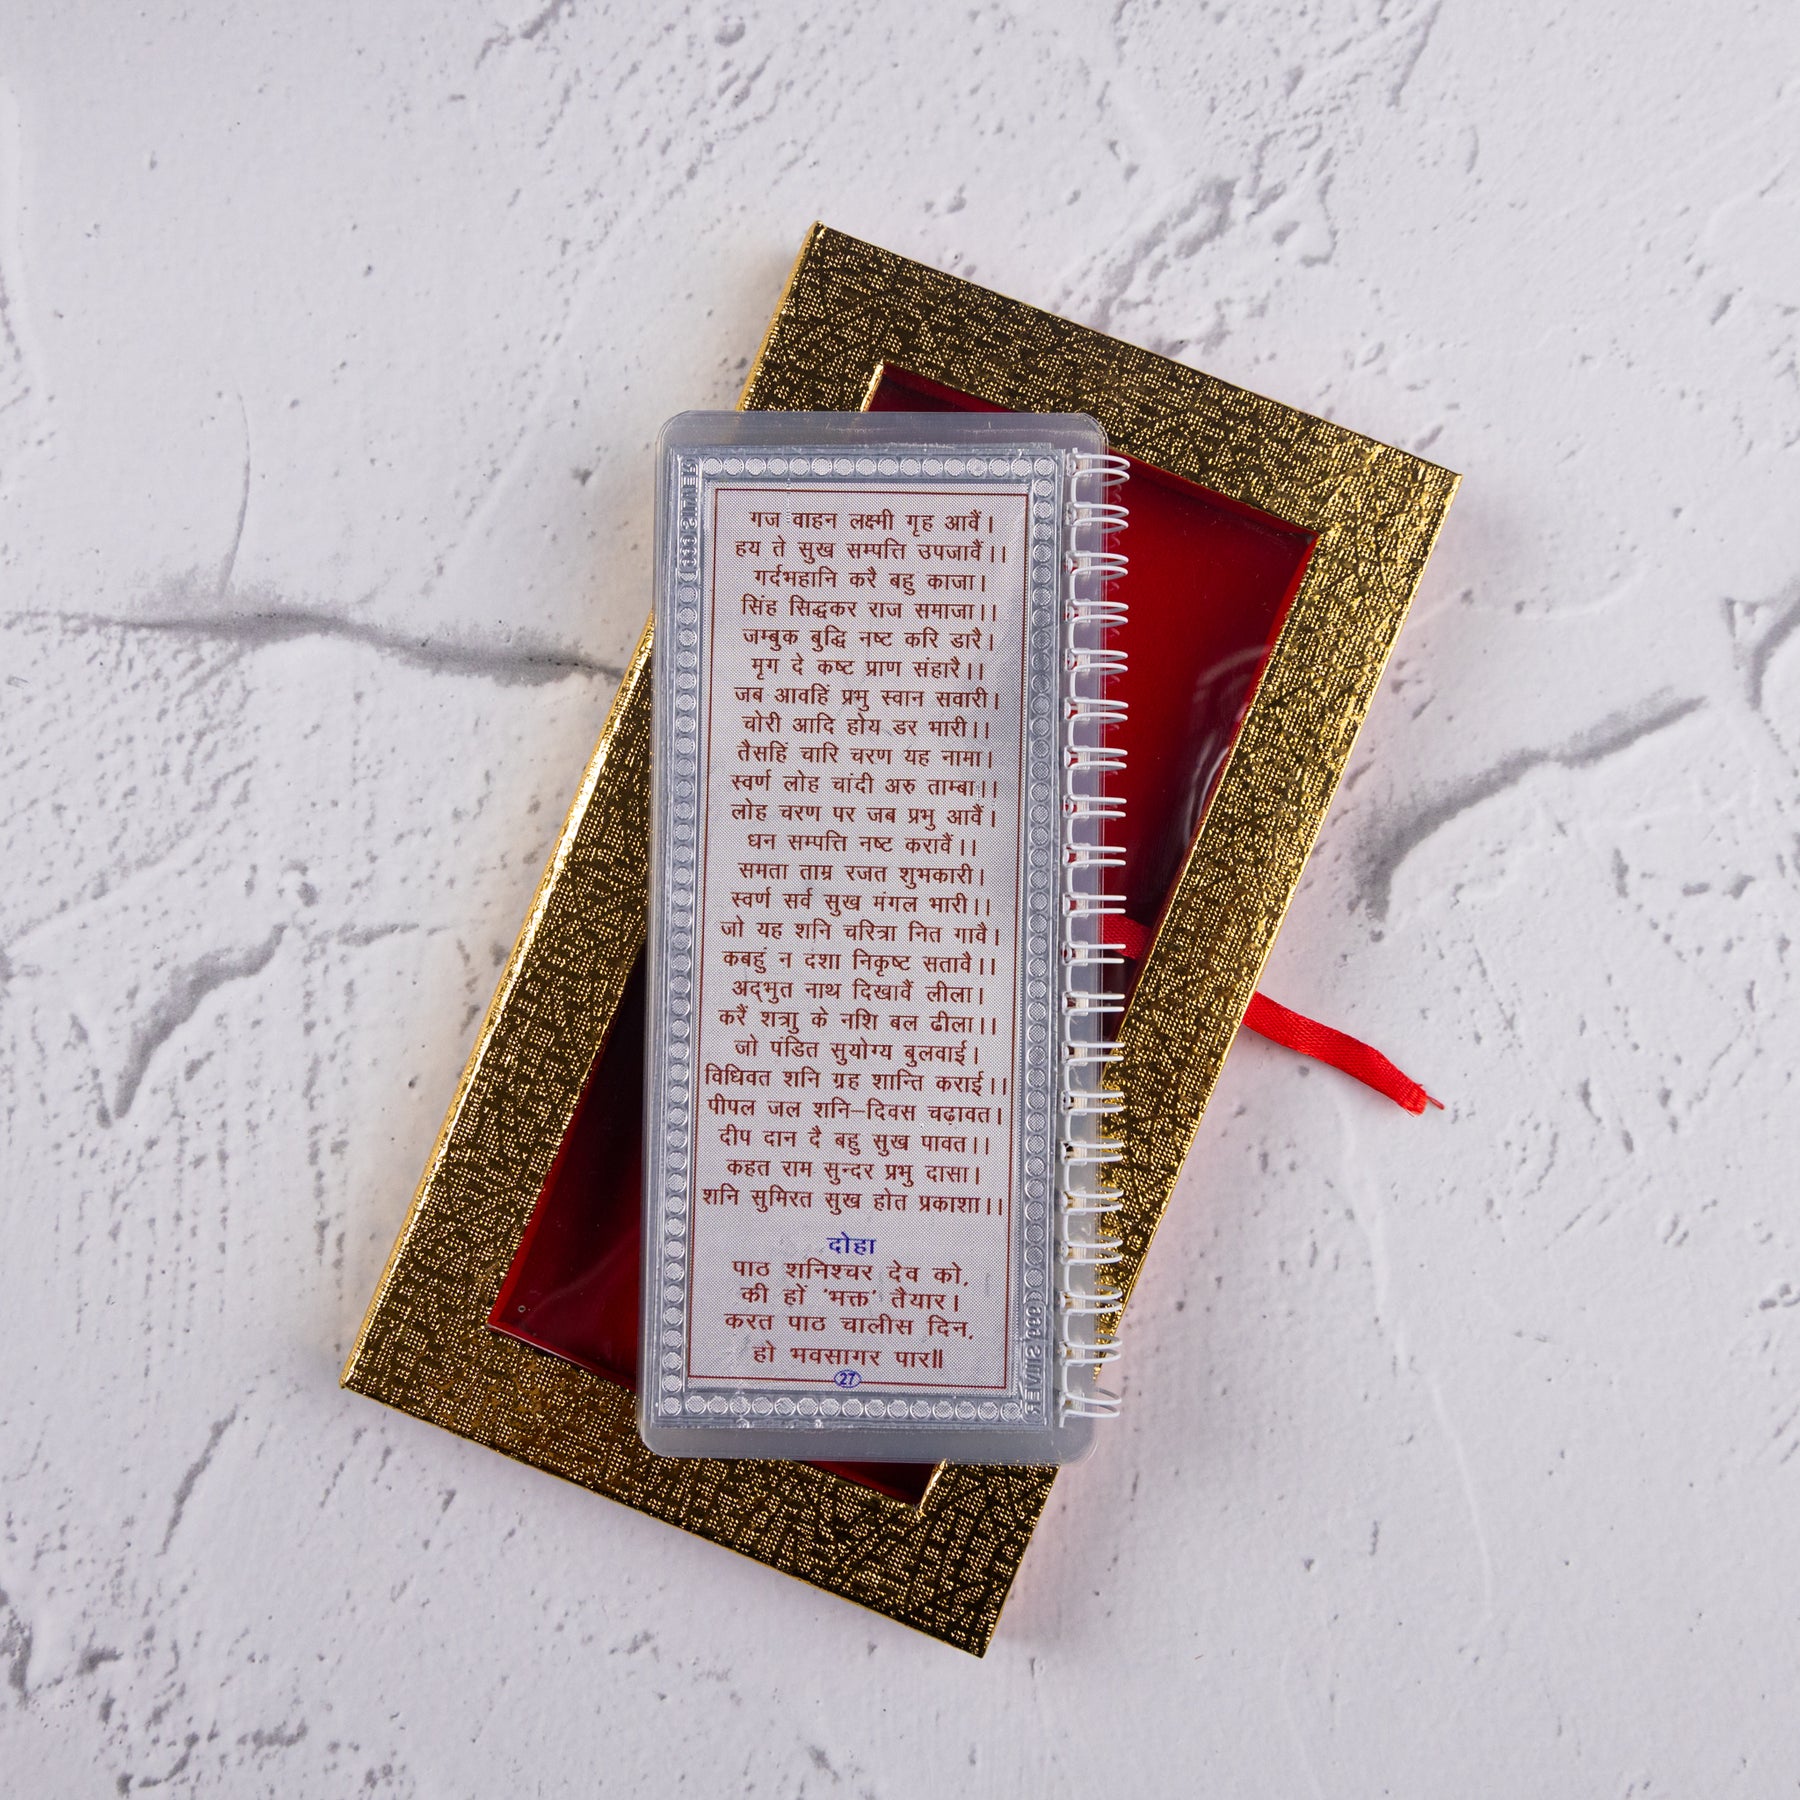 गज वाहन लक्ष्मी गृह आवैं।
हय ते सुख सम्पत्ति उपजावैं।।
गर्दभहानि करै बहु काजा।
सिंह सिद्धकर राज समाजा।।
जम्बुक बुद्धि नष्ट करि डारै।
मृग दे कष्ट प्राण संहारै।।
जब आवहिं प्रभु स्वान सवारी।
चोरी आदि होय डर भारी।।
तैसहिं चारि चरण यह नामा।
स्वर्ण लोह चांदी अरु ताम्बा।।
लोह चरण पर जब प्रभु आवैं।
धन सम्पत्ति नष्ट करावैं।।
समता ताम्र रजत शुभकारी।
स्वर्ण सर्व सुख मंगल भारी।।
जो यह शनि चरित्रा नित गावै।
कबहुं न दशा निकृष्ट सतावै।।
अद्भुत नाथ दिखावैं लीला।
करैं शत्राु के नशि बल ढीला।।
जो पंडित सुयोग्य बुलवाई।
विधिवत शनि ग्रह शान्ति कराई।।
पीपल जल शनि–दिवस चढ़ावत।
दीप दान दै बहु सुख पावत।।
कहत राम सुन्दर प्रभु दासा।
शनि सुमिरत सुख होत प्रकाशा।।
दोहा
पाठ शनिश्चर देव को,
की हों 'भक्त' तैयार।
करत पाठ चालीस दिन,
हो भवसागर पार॥
27
999 SILVER
999 SILVER